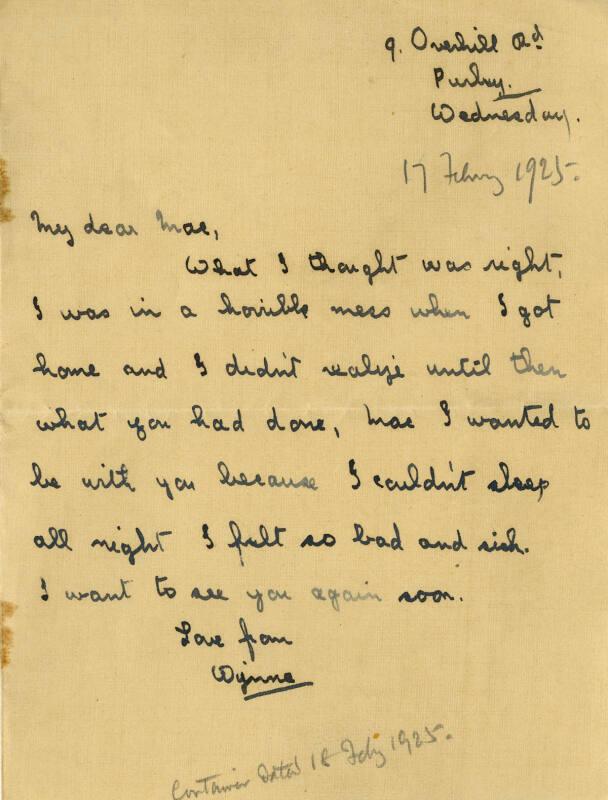 9. Overhill Rd
Purley.
Wednesday.
17 Febry 1925.
My dear Mac,
What I thought was right,
I was in a horrible mess when I got
home and I didn't realize until then
what you had done, Mac I wanted to
be with you because I couldn't sleep
all night I felt so bad and sick.
I want to see you again soon.
Love from
Wynne
Container dated 18 Feby 1925.